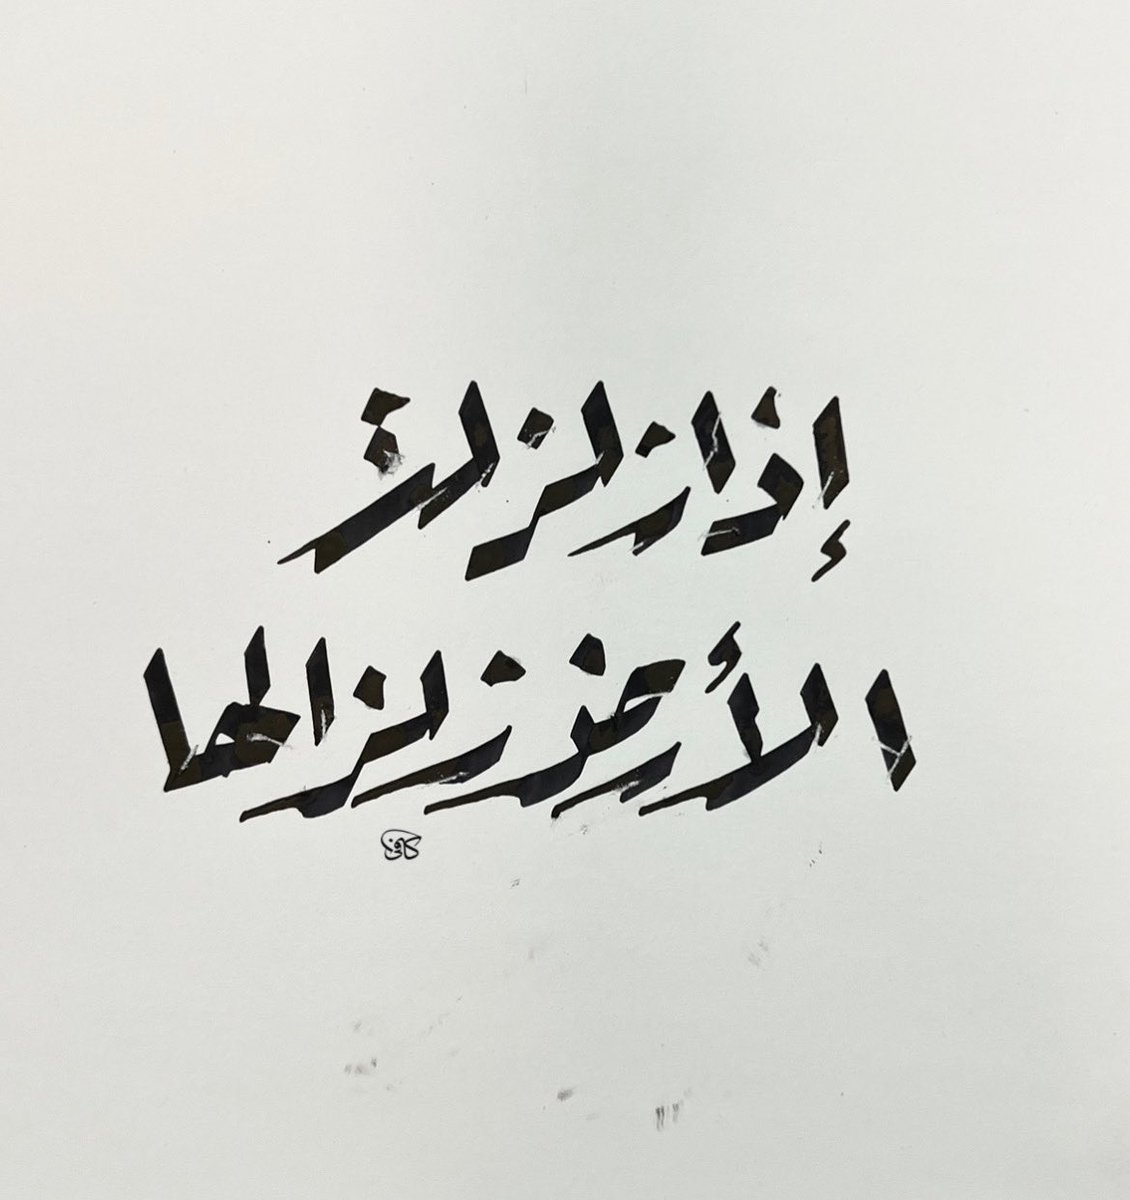 إذا زلزلت
الأرض زلزالها
كافي